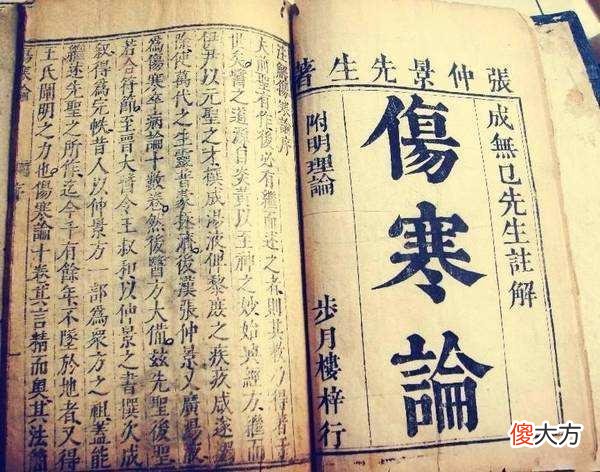 張仲景先生著
成無已先生註解
傷寒論
附明理論
步月樓梓行
注解傷寒論序
夫前聖有作後必有繼而述之者則其教乃得著于
世矣醫之道源自炎黃以至神之妙始興經方繼而
伊尹以元聖之才撰成湯液俾黎庶之疾疢咸遂蠲
除使萬代之生靈普蒙拯濟後漢張仲景又廣湯液
為傷寒卒病論十數卷然後醫方大備茲先聖後聖
若合符節至晉太醫令王叔和以仲景之書撰次成
敘得為完帙昔人以仲景方一部為衆方之祖蓋能
繼述先聖之所作迄今千有餘年不墜於地者又得
王氏闡明之力也傷寒論十卷其言精而奧其法簡
傷寒論
傻大方